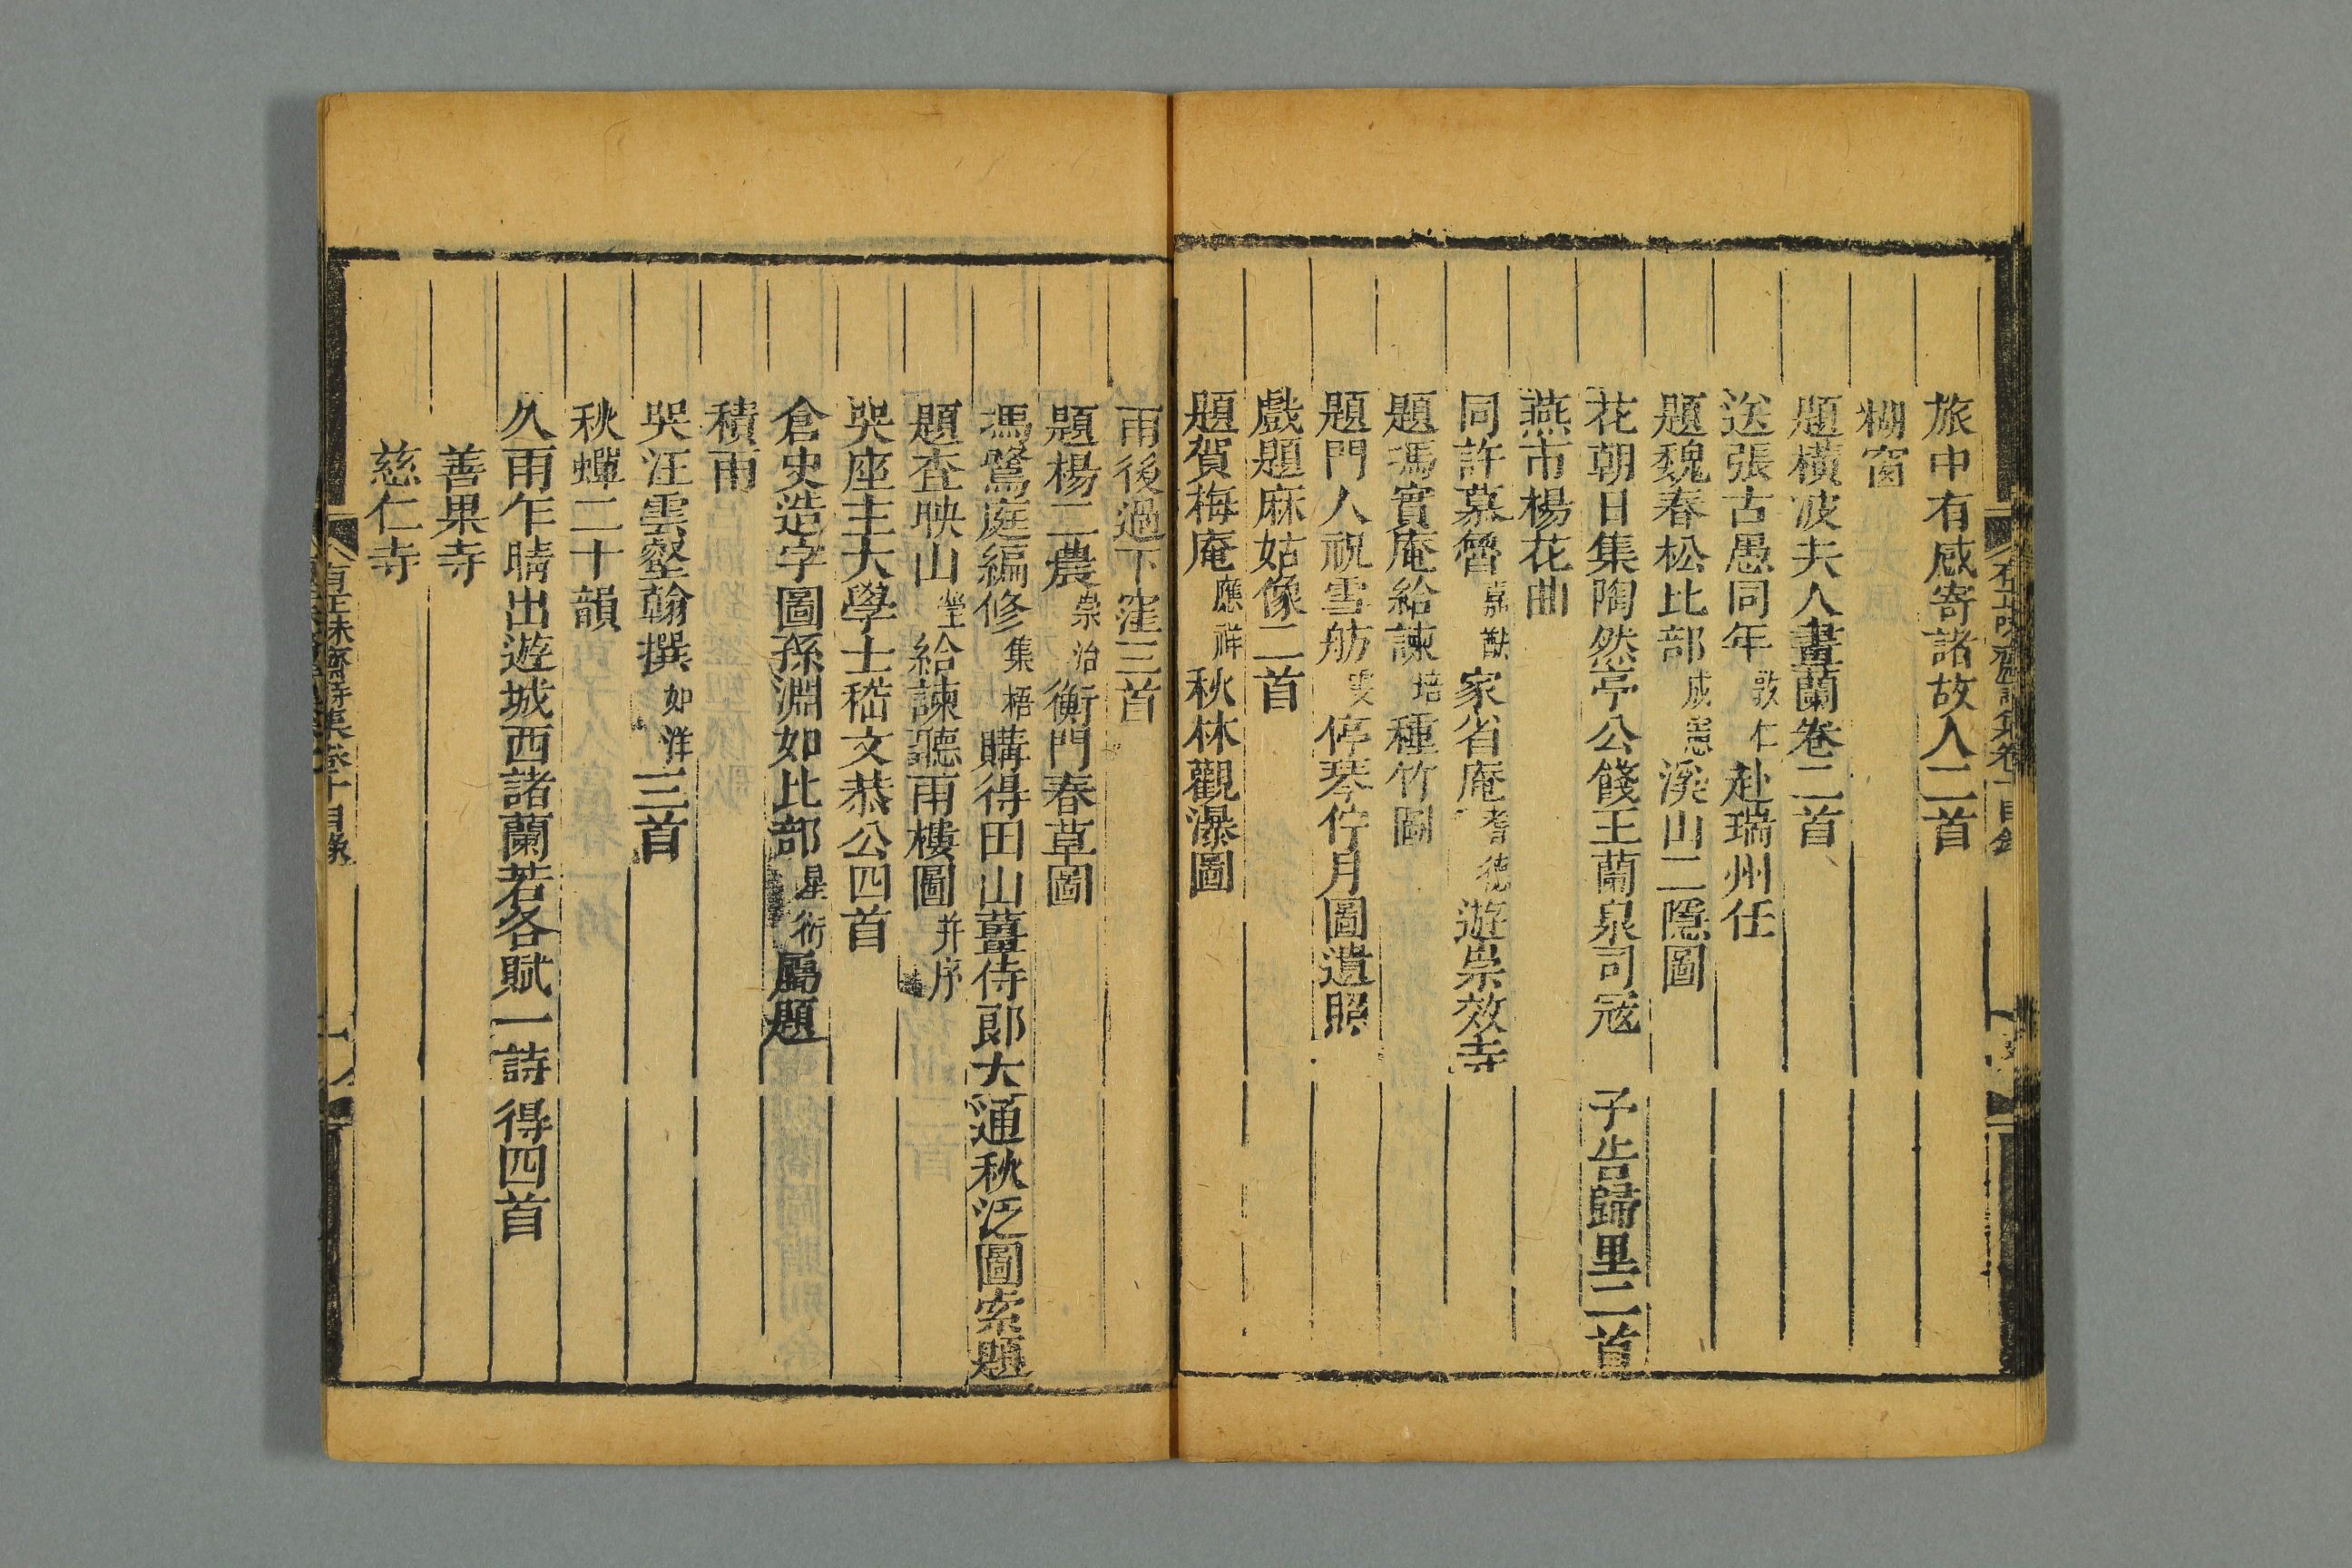 旅中有感寄諸故人二首
糊窗
題橫波夫人畫蘭卷二首
送張古愚同年敦仁赴瑞州任
題魏春松比部成憲溪山二隱圖
花朝日集陶然亭公餞王蘭泉司寇　予告歸里二首
燕市楊花曲
同許慕魯嘉猷家省庵耆德遊崇效寺
題馮實庵給諫培種竹圖
題門人祝雪舫雯停琴佇月圖遺照
戲題麻姑像二首
題賀梅庵應祥秋林觀瀑圖
雨後過下窪三首
題楊二農崇治衡門春草圖
馮鷺庭編修集梧購得田山薑侍郎大通秋泛圖索題
題查映山瑩給諫聽雨樓圖并序
哭座主大學士嵇文恭公四首
倉史造字圖孫淵如比部星衍屬題
積雨
哭汪雲壑翰撰如洋三首
秋蟬二十韻
久雨乍晴出遊城西諸蘭若各賦一詩得四首
善果寺
慈仁寺
有正味齋詩集卷十目錄